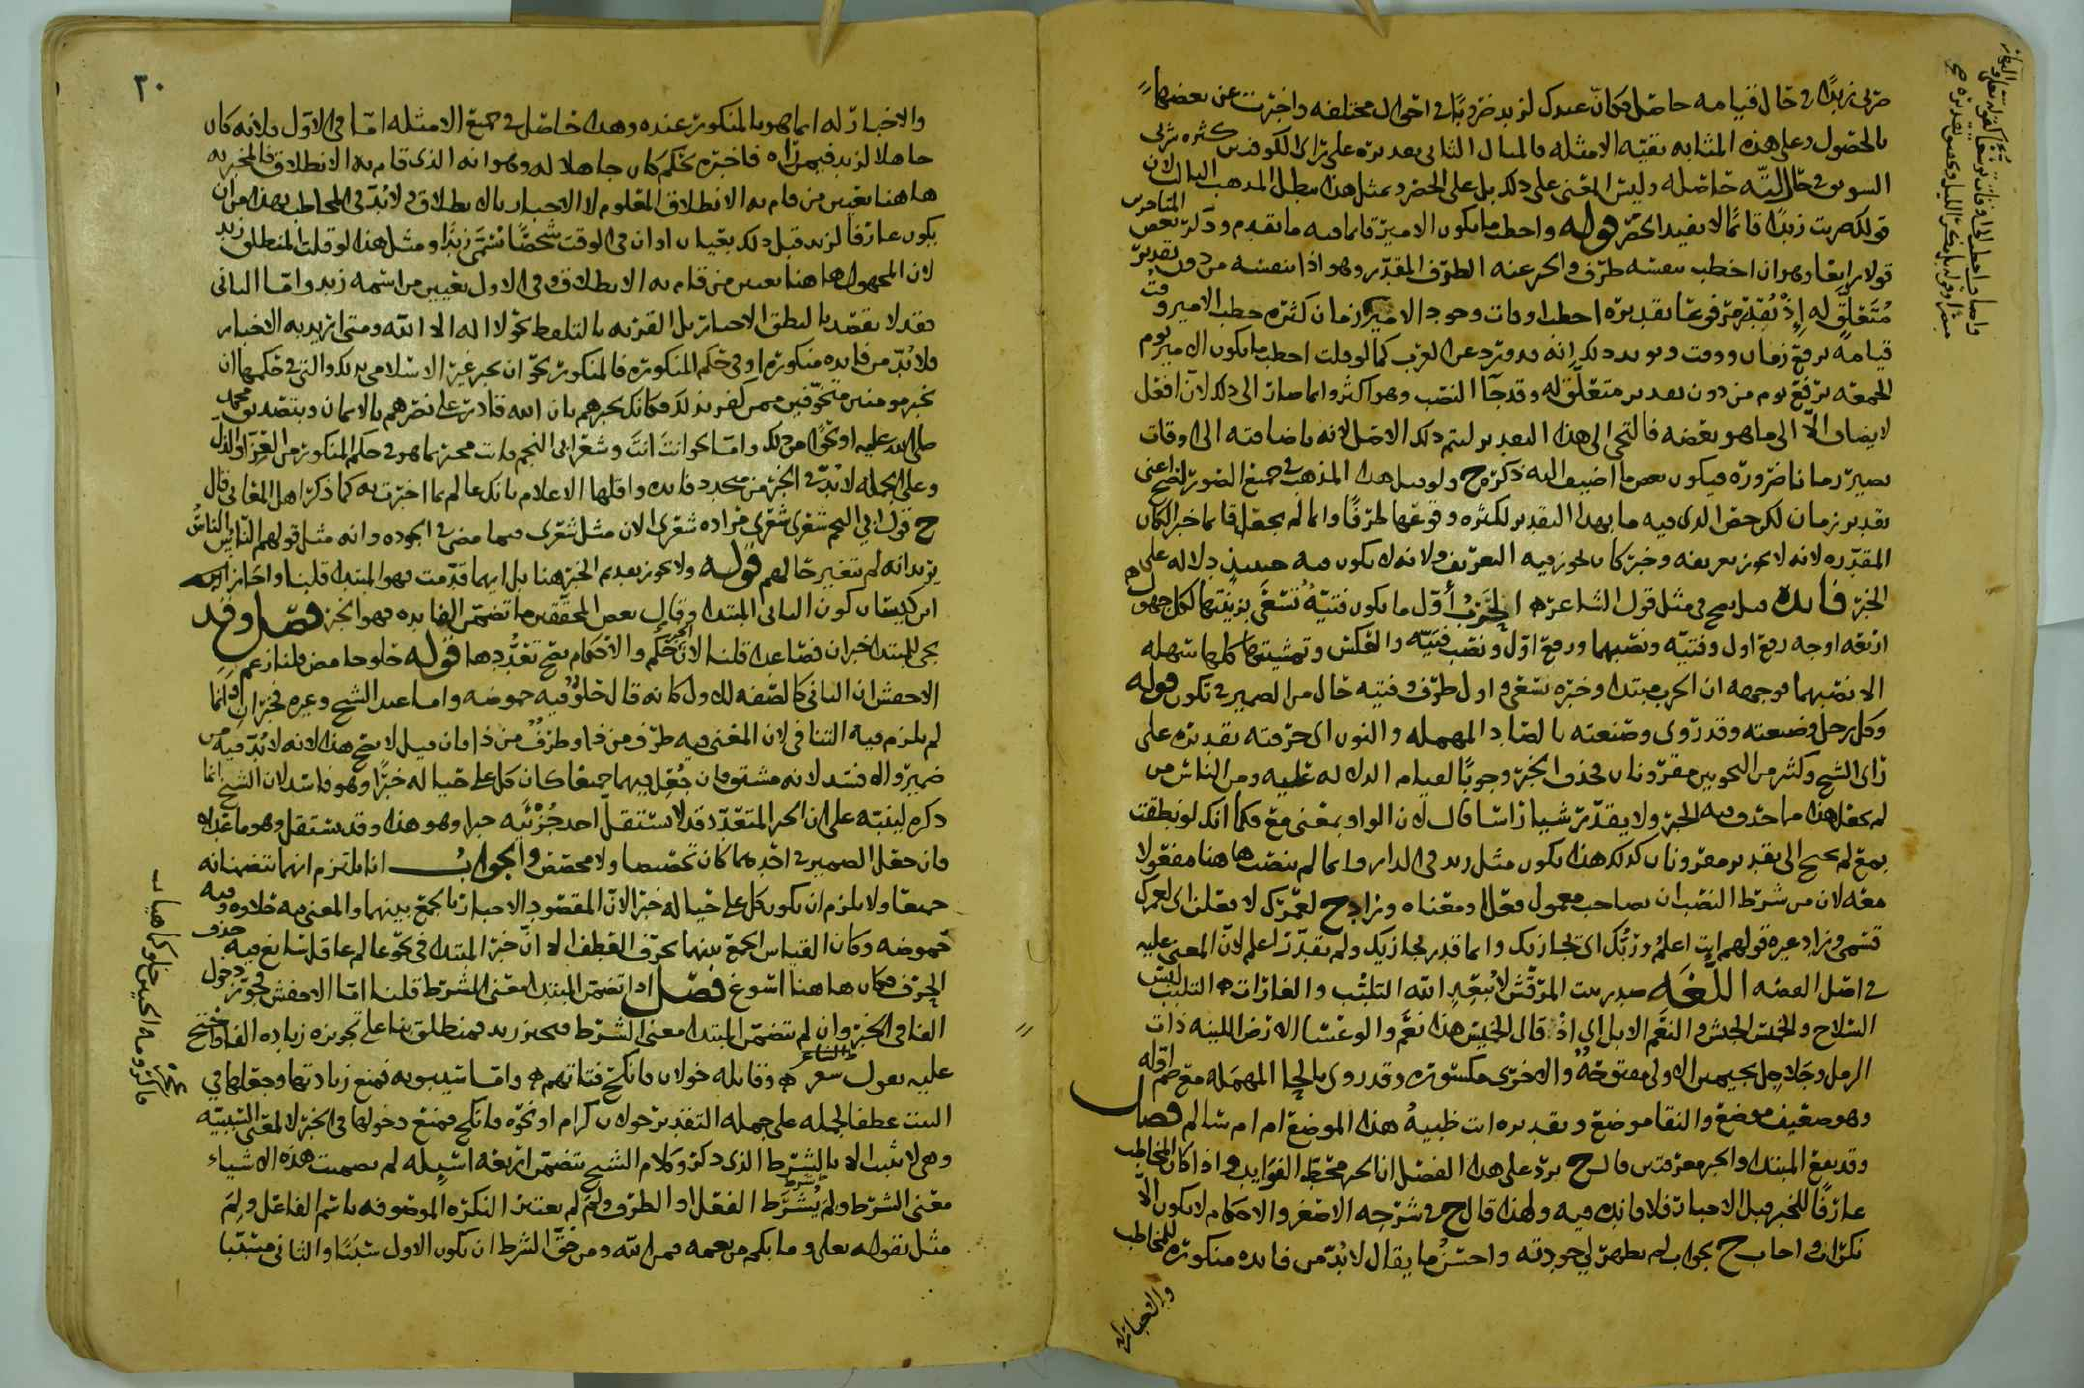 ضربي زيدا في حال قيامه حاصل فكان عندك لزيد ضروبا في احوال مختلفه واخبرت عن بعضها
بالحصول وعلى هذه المثابه بقيه الامثله فالمثال الثاني تقديره على راى الكوفيين كثره شربي
السويق في حال لته حاصله وليس المعنى على ذلك بل على الحصر وبمثل هذا يبطل المذهب الثالث لان
قولك ضربت زيدا قائما لا يفيد الحصر قوله واخطب ما يكون الامير قائما فيه ما تقدم وذكر بعض المتاخرين
قولا رابعا وهو ان اخطب بنفسه ظرف والخبر عنه الظرف المقدر وهو اذا بنفسه من دون تقدير
متعلق له اذ تقديره مرفوعا تقديره اخطب اوقات وجود الامير زمان كثره خطب الامير وقت
قيامه برفع زمان ووقت ويويد ذلك انه قد ورد عن العرب كما لو قلت اخطب ما يكون الامير يوم
الجمعه برفع يوم من دون تقدير متعلق له وقد جآ النصب وهو اكثر وانما صار الى ذلك لان افعل
لا يضاف الا الى ما هو بعضه فالتجى الى هذا التقدير ليتم ذلك الاصل لانه باضافته الى اوقات
يصير زمانا ضروره فيكون بعض ما اضيف اليه ذكره ح ولو قيل هذا المذهب في جميع الصور لصح اعنى
تقدير زمان لكن حق الذي فيه ما بهذا التقدير لكثره وقوعها ظرفا وانما لم يجعل قائما خبر الكان
المقدره لانه لا يجوز تعريفه وخبر كان يجوز فيه التعريف ولانه لا يكون فيه حينئذ دلاله على
الخبر فايده قيل يصح في مثل قول الشاعر ه الحرب أول ما يكون فتيه تسعى بزينتها لكل جهول
اربعه اوجه رفع اول وفتيه ونصبهما ورفع اول ونصب فتيه والعكس وتمشيتها كلها سهله
الا نصبهما فوجهه ان الحرب مبتدا وخبره تسعى و اول ظرف وفتيه حال من الضمير في تكون قوله
وكل رجل وضيعته وقد روى وصنعته بالصاد المهمله والنون اى حرفته تقديره على
راى الشيخ وكثير من النحويين مقرونان فحذف الخبر وجوبا لقيام الدلاله عليه ومن الناس من
لم يجعل هذا مما حذف فيه الخبر ولا يقدر شيا راسا قال لان الواو بمعنى مع فكما انك لو نطقت
بمع لم يحتج الى تقدير مقرونان كذلك هذا يكون مثل زيد في الدار وانما لم ينتصب هاهنا مفعولا
معه لان من شرط النصب ان يصاحب معمول فعل او معناه وزاد ح لعمرك لافعلن اى لعمرك
قسمى وزاد غيره قولهم انت اعلم وربك اى مجازيك وانما قدر مجازيك ولم يقدر اعلم لان المعنى عليه
في اصل القصه اللغه صدر بيت المرقش لا يبعد الله التلبب والغارات ه التلبب لبس
السلاح والخميس الجيش والنعم الابل اى اذ قال الخميس هذا نعم والوعسا الارض اللينه ذات
الرمل وجلاجل بجيمين الاولى مفتوحه والاخرى مكسوره وقد روى بالحا المهمله مع ضم اوله
وهو ضعيف موضع والنقا موضع وتقديره اانت ظبيه هذا الموضع ام ام سالم فصل
وقد يقع المبتدا والخبر معرفتين قال ح يرد على هذا الفصل ان الخبر محط الفوايد فاذا كان المخاطب
عارفا للخبر قبل الاخبار فلا فايده فيه ولهذا قال ح في شرحه الاصغر والاحكام لا يكون الا
نكرات واجاب ح بجواب لم يظهر لي جودته واحسن ما يقال لا بد من فايده منكوره للمخاطب
والاخبار
والاخبار له انما هو بالمنكور عنده وهذا حاصل في جميع الامثله اما في الاول فلانه كان
جاهلا لزيد فيمن راه فاخبره بحكم كان جاهلا له وهو انه الذي قام به الانطلاق فالمخبر به
هاهنا تعيين من قام به الانطلاق المعلوم لا الاخبار بالانطلاق ولا بد في المخاطب بهذا من ان
يكون عارفا لزيد قبل ذلك بعيان او ان في الوقت شخصا يسمى زيدا ومثل هذا لو قلت المنطلق زيد
لان المجهول هاهنا تعيين من قام به الانطلاق وفي الاول تعيين من اسمه زيد واما الثاني
فقد لا يقصد بالنطق الاخبار بل القربه بالتلفظ نحو لا اله الا الله ومتى اريد به الاخبار
فلا بد من فايده منكوره او في حكم المنكوره فالمنكوره نحو ان يخبر غير الاسلامي بذلك والتي في حكمها ان
يخبر مومنين متخوفين ممن كفر بذلك فكانك تخبرهم بان الله قادر على نصرهم بالايمان وبتصديق محمد
صلى الله عليه او نحو من ذلك واما نحو انت انت وشعر ابي النجم فانت مخبر بما هو في حكم المنكور من العز او الذل
وعلى الجمله لا بد في الخبر من تجدد فايده واقلها الاعلام بانك عالم بما اخبرت به كما ذكر اهل المعاني قال
ح قول ابي النجم شعرى شعرى مراده شعرى الان مثل شعرى فيما مضى في الجوده وانه مثل قولهم الناس الناس
يريد انه لم تتغير حالهم قوله ولا يجوز تقديم الخبر هنا بل ايهما قدمت فهو المبتدا قلنا واجاز
ابن كيسان كون الثاني المبتدا وقال بعض المحققين ما تضمن الفايده فهو الخبر فصل وقد
يجى للمبتدا خبران فصاعدا قلنا لان الخبر حكم والاحكام يصح تعددها قوله حلو حامض قلنا زعم
الاخفش ان الثاني كالصفه للاول كانه قال حلو فيه حموضه واما عند الشيخ وغيره فخبران وانما
لم يلزم فيه التنافي لان المعنى فيه طرف من ذا وطرف من ذا فان قيل لا يصح هذا لانه لا بد فيه من
ضمير والا فسد لانه مشتق فان جعل فيهما جميعا كان كل على حياله خبرا وهو فاسد لان الشيخ انما
ذكره لينبه على ان الخبر المتعدد قد لا يستقل احد جزئيه خبرا وهو هذا وقد يستقل وهو ما عداه
وان جعل الضمير في احدهما كان تخصيصا ولا مخصص والجواب انا نلتزم انهما تضمنانه
جميعا ولا يلزم ان يكون كل على حياله خبرا لان المقصود الاخبار بالجمع بينهما والمعنى فيه حلاوه وفيه
حموضه وكان القياس الجمع بينهما بحرف العطف الا ان خبر المبتدا في نحو عالم عاقل شايع فيه حذف
الحرف فكان هاهنا اسوغ فصل اذا تضمن المبتدا معنى الشرط قلنا اما الاخفش فيجوز دخول
الفا في الخبر وان لم يتضمن المبتدا معنى الشرط فيجيز زيد فمنطلق بنا على تجويزه زياده الفا واحتج
عليه بقول الشاعر شعر ه وقايله خولان فانكح فتاتهم ه واما سيبويه فمنع زيادتها وجعلها في
البيت عطفا لجمله على جمله التقدير خولان كرام او نحوه فانكح فمنع دخولها في الخبر الا لمعنى السببيه
وهي لا تثبت الا بالشرط الذي ذكر وكلام الشيخ يتضمن اربعه اسيله لم تضمنت هذه الاشياء
معنى الشرط ولم يشترط الفعل او الظرف ولم لم يعتبر النكره الموصوفه باسم الفاعل ولم
مثل بقوله تعلى وما بكم من نعمه فمن الله ومن حق الشرط ان يكون الاول سببا والثاني مسببا
٣٠